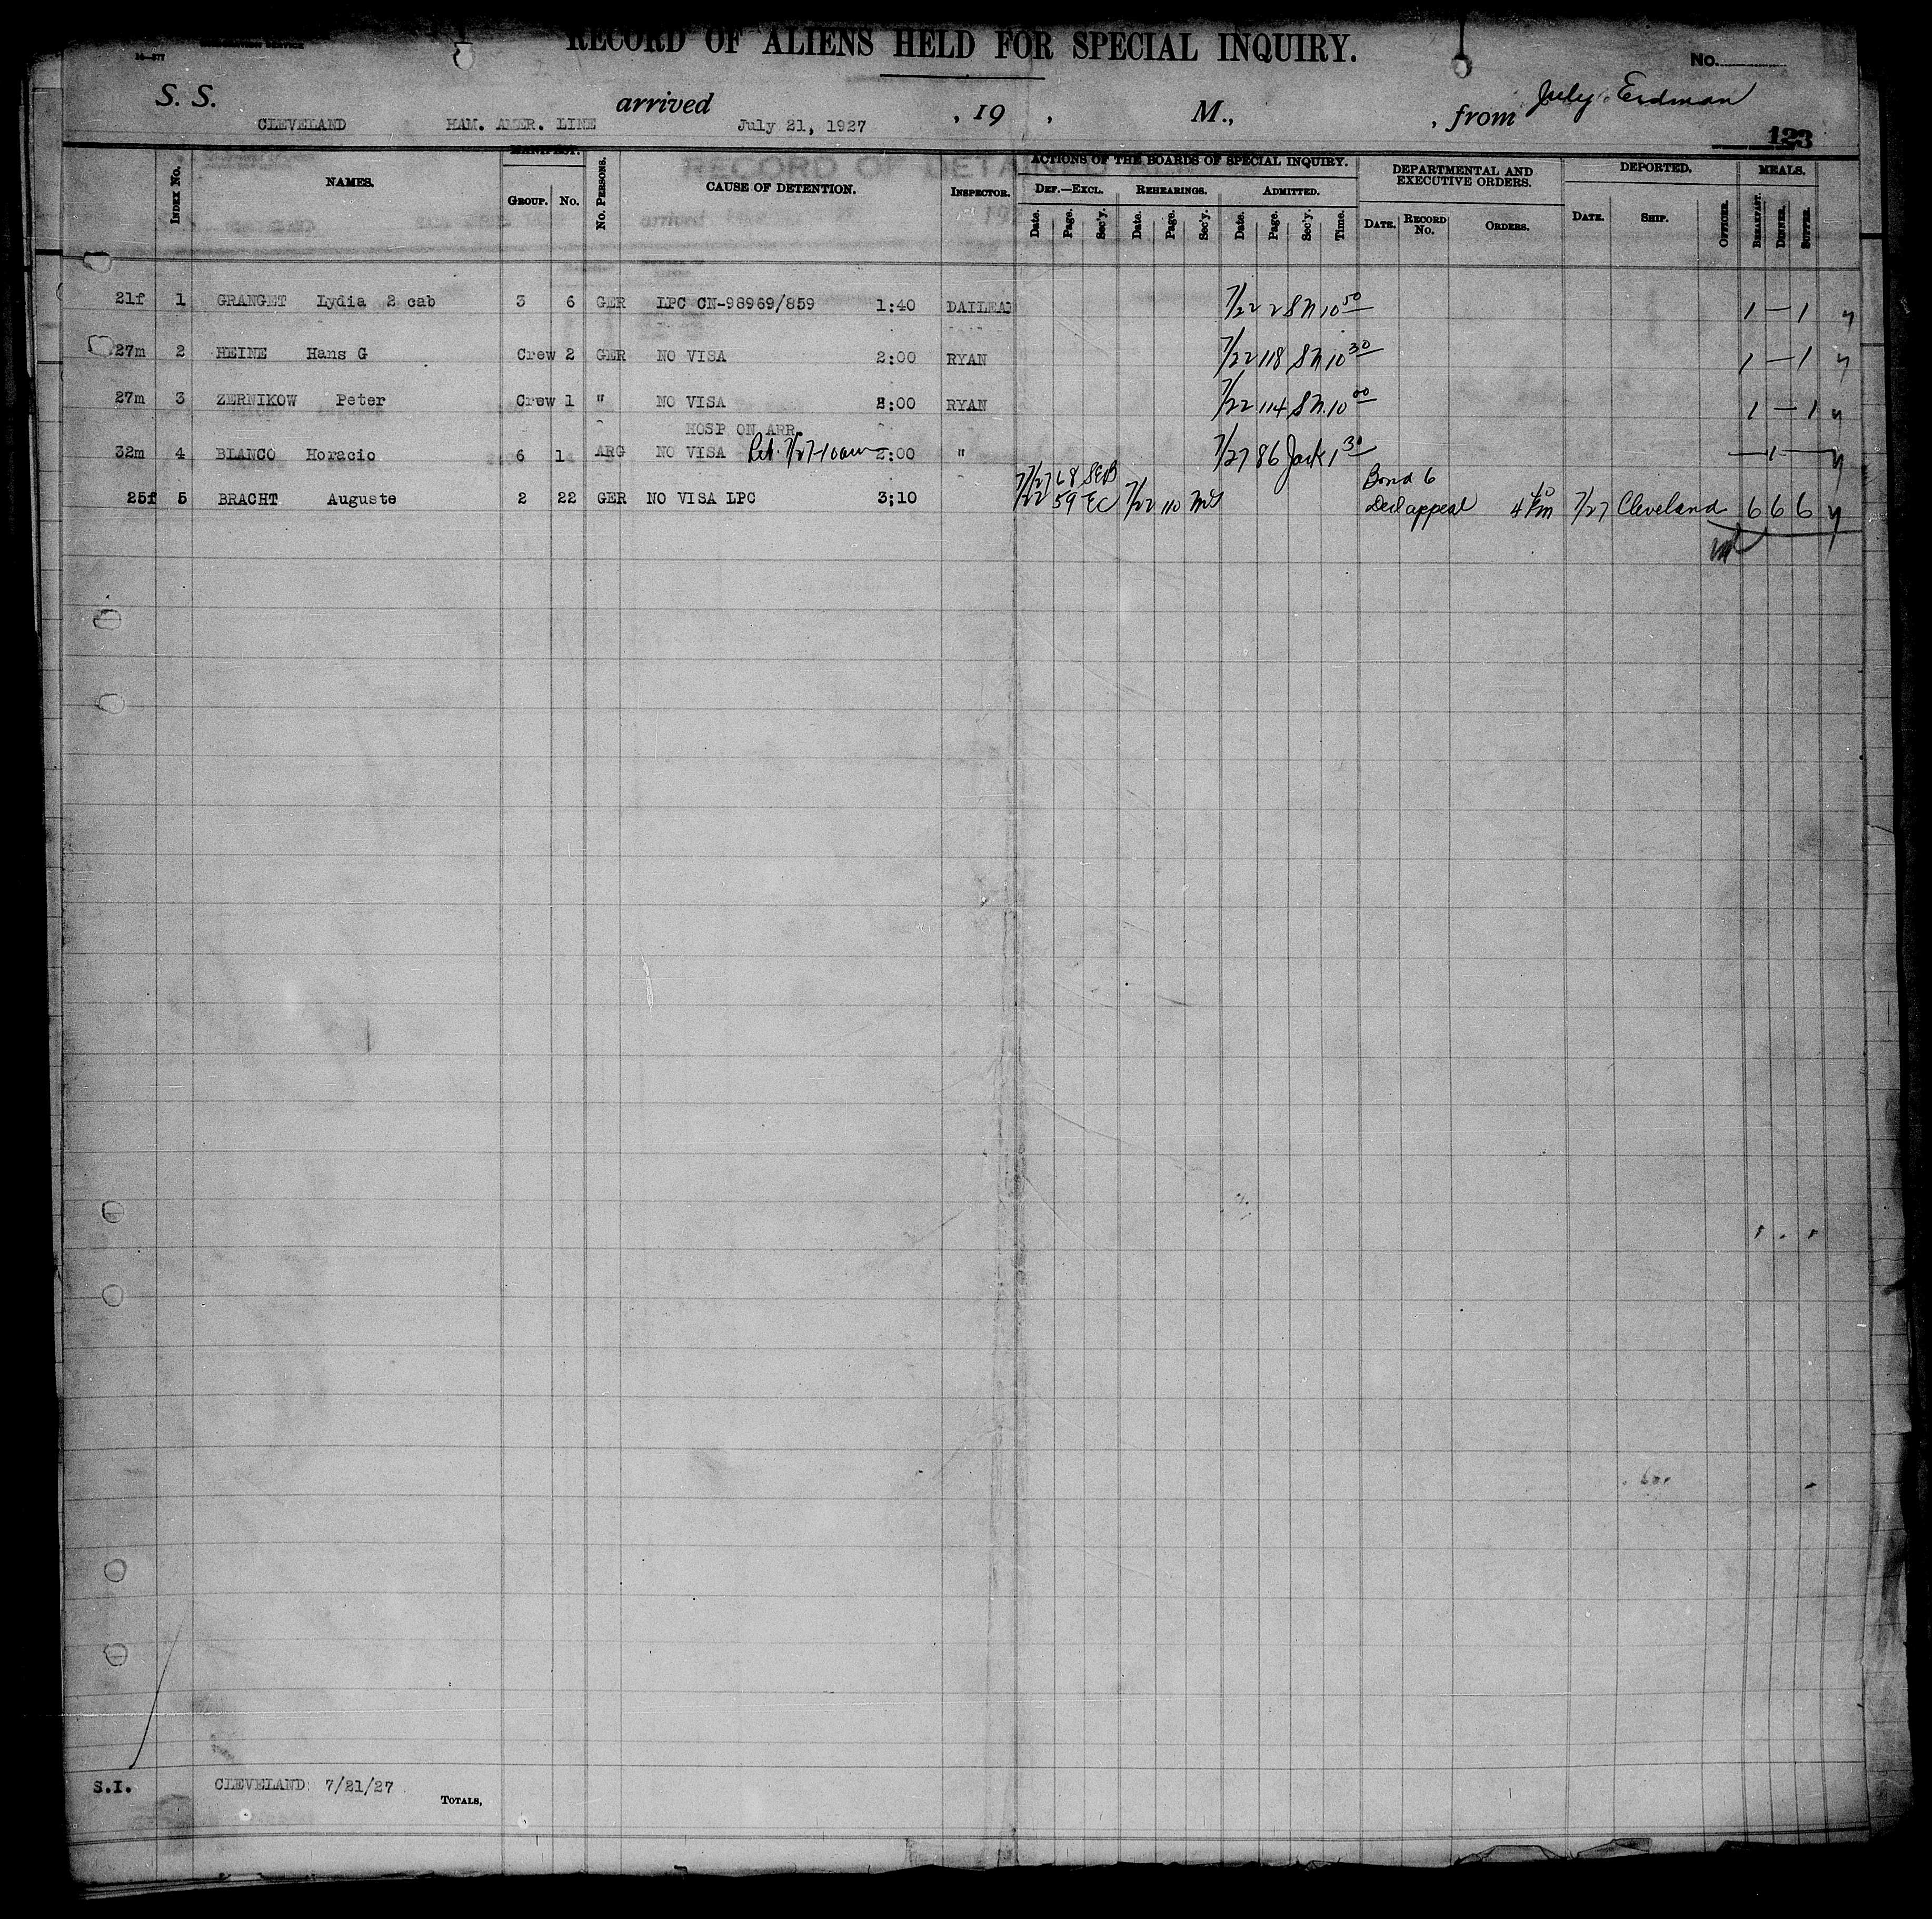 RECORD OF ALIENS HELD FOR SPECIAL INQUIRY.
No.
S. S. arrived , 19 , M., , from July Erdman
CLEVELAND HAM. AMER. LINE July 21, 1927
123
MANIFEST. ACTIONS OF THE BOARDS OF SPECIAL INQUIRY. DEPARTMENTAL AND EXECUTIVE ORDERS. DEPORTED. MEALS.
INDEX No. NAMES. GROUP. No. No. PERSONS. CAUSE OF DETENTION. INSPECTOR. DEF.—EXCL. REHEARINGS. ADMITTED.
Date. Page. Sec'y. Date. Page. Sec'y. Date. Page. Sec'y. Time. DATE. RECORD No. ORDERS. DATE. SHIP. OFFICER. BREAKFAST. DINNER. SUPPER.
21f 1 GRANGET Lydia 2 cab 3 6 GER LPC CN-98969/859 1:40 7/22 2 SN 10 50 1 — 1
27m 2 HEINE Hans G Crew 2 GER NO VISA 2:00 RYAN 7/22 118 SN 10 30 1 — 1
27m 3 ZERNIKOW Peter Crew 1 " NO VISA :00 RYAN 7/22 114 SN. 10 00 1 — 1
HOSP ON ARR.
32m 4 BLANCO Horacio 6 1 ARG NO VISA 7/27 10am 2:00 " 7/27 86 Jack 1 30 — 1 —
7/27 68 SEB Bond 6
25f 5 BRACHT Auguste 2 22 GER NO VISA LPC 3;10 7/22 59 EC 7/22 110 appeal 7/27 Cleveland 6 6 6
S.I. CLEVELAND 7/21/27
TOTALS,